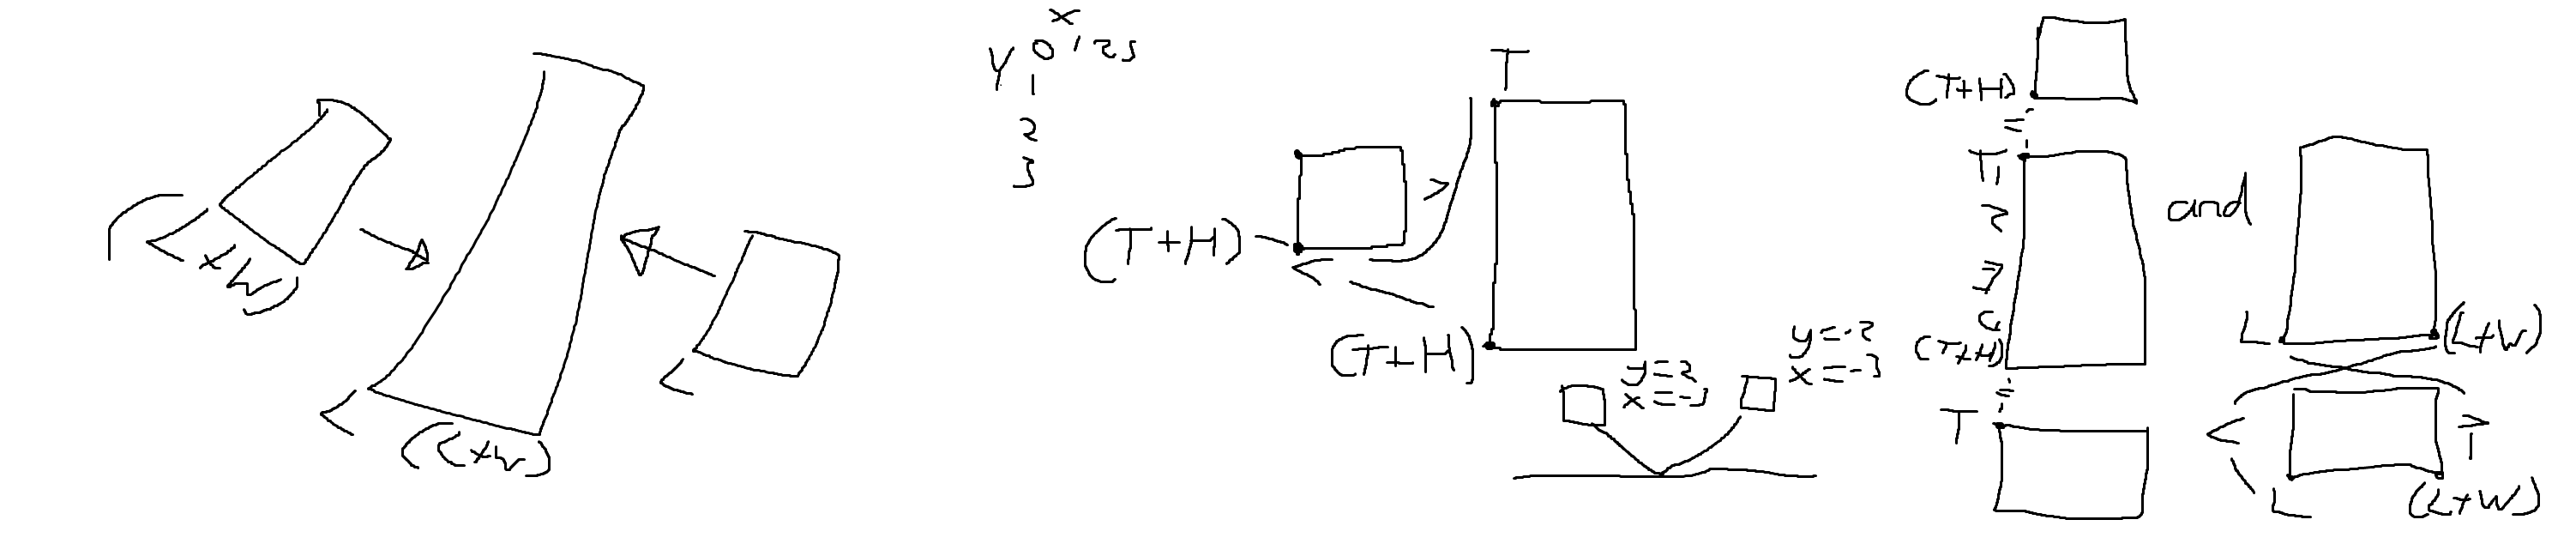 (L+W)
L
(L+W)
L
x
y 0 1 2 3
1
2
3
T
(T+H)
>
<
(T+H)
y=2
x=-3
y=-2
x=-3
(T+H)
=
T
1
2
3
(T+H)
=
T
and
L
(L+W)
<
>
L
(L+W)